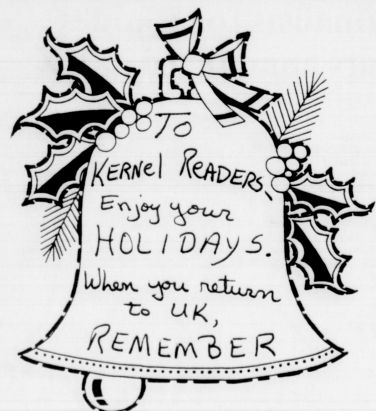 To
KERNEL READERS,
Enjoy your
HOLIDAYS.
When you return
to UK,
REMEMBER